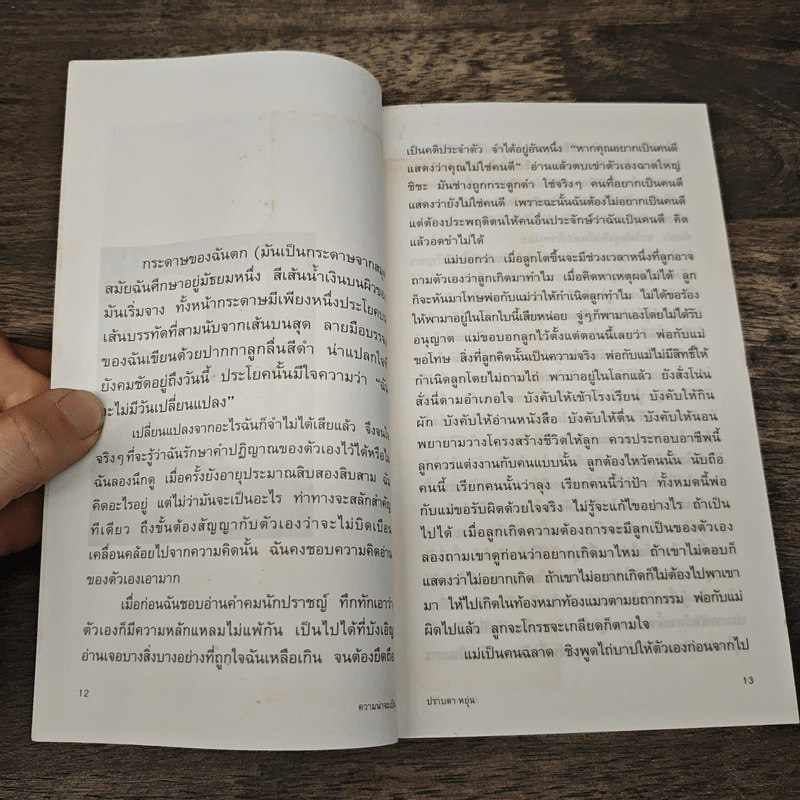 กระดาษของฉันตก (มันเป็นกระดาษจากสมุด
สมัยฉันศึกษาอยู่มัธยมหนึ่ง สีเส้นน้ำเงินบนผิวของ
มันเริ่มจาง ทั้งหน้ากระดาษมีเพียงหนึ่งประโยคบน
เส้นบรรทัดที่สามนับจากเส้นบนสุด ลายมือบรรจง
ของฉันเขียนด้วยปากกาลูกลื่นสีดำ น่าแปลกใจที่
ยังคมชัดอยู่ถึงวันนี้ ประโยคนั้นมีใจความว่า “ฉัน
จะไม่มีวันเปลี่ยนแปลง”
เปลี่ยนแปลงจากอะไรฉันก็จำไม่ได้เสียแล้ว จึงจนใจ
จริงๆ ที่จะรู้ว่าฉันรักษาคำปฏิญาณของตัวเองไว้ได้หรือไม่
ฉันลองนึกดู เมื่อครั้งยังอายุประมาณสิบสองสิบสาม ฉัน
คิดอะไรอยู่ แต่ไม่ว่ามันจะเป็นอะไร ท่าทางจะสลักสำคัญ
ทีเดียว ถึงขั้นต้องสัญญากับตัวเองว่าจะไม่บิดเบือน
เคลื่อนคล้อยไปจากความคิดนั้น ฉันคงชอบความคิดอ่าน
ของตัวเองเอามาก
เมื่อก่อนฉันชอบอ่านคำคมนักปราชญ์ ทึกทักเอาว่า
ตัวเองก็มีความหลักแหลมไม่แพ้กัน เป็นไปได้ที่บังเอิญ
อ่านเจอบางสิ่งบางอย่างที่ถูกใจฉันเหลือเกิน จนต้องยึดถือ
12
ความน่าจะเป็น
เป็นคติประจำตัว จำได้อยู่อันหนึ่ง “หากคุณอยากเป็นคนดี
แสดงว่าคุณไม่ใช่คนดี” อ่านแล้วตบเข่าตัวเองฉาดใหญ่
ชิชะ มันช่างถูกกระดูกดำ ใช่จริงๆ คนที่อยากเป็นคนดี
แสดงว่ายังไม่ใช่คนดี เพราะฉะนั้นฉันต้องไม่อยากเป็นคนดี
แต่ต้องประพฤติตนให้คนอื่นประจักษ์ว่าฉันเป็นคนดี คิด
แล้วอดขำไม่ได้
แม่บอกว่า เมื่อลูกโตขึ้นจะมีช่วงเวลาหนึ่งที่ลูกอาจ
ถามตัวเองว่าลูกเกิดมาทำไม เมื่อคิดหาเหตุผลไม่ได้ ลูก
ก็จะหันมาโทษพ่อกับแม่ว่าให้กำเนิดลูกทำไม ไม่ได้ขอร้อง
ให้พามาอยู่ในโลกใบนี้เสียหน่อย จู่ๆ ก็พามาเองโดยไม่ได้รับ
อนุญาต แม่ขอบอกลูกไว้ตั้งแต่ตอนนี้เลยว่า พ่อกับแม่
ขอโทษ สิ่งที่ลูกคิดนั้นเป็นความจริง พ่อกับแม่ไม่มีสิทธิ์ให้
กำเนิดลูกโดยไม่ถามไถ่ พามาอยู่ในโลกแล้ว ยังสั่งโน่น
สั่งนี่ตามอำเภอใจ บังคับให้เข้าโรงเรียน บังคับให้กิน
ผัก บังคับให้อ่านหนังสือ บังคับให้ตื่น บังคับให้นอน
พยายามวางโครงสร้างชีวิตให้ลูก ควรประกอบอาชีพนี้
ลูกควรแต่งงานกับคนแบบนั้น ลูกต้องไหว้คนนั้น นับถือ
คนนี้ เรียกคนนั้นว่าลุง เรียกคนนี้ว่าป้า ทั้งหมดนี้พ่อ
กับแม่ขอรับผิดด้วยใจจริง ไม่รู้จะแก้ไขอย่างไร ถ้าเป็น
ไปได้ เมื่อลูกเกิดความต้องการจะมีลูกเป็นของตัวเอง
ลองถามเขาดูก่อนว่าอยากเกิดมาไหม ถ้าเขาไม่ตอบก็
แสดงว่าไม่อยากเกิด ถ้าเขาไม่อยากเกิดก็ไม่ต้องไปพาเขา
มา ให้ไปเกิดในท้องหมาท้องแมวตามยถากรรม พ่อกับแม่
ผิดไปแล้ว ลูกจะโกรธจะเกลียดก็ตามใจ
แม่เป็นคนฉลาด ชิงพูดไถ่บาปให้ตัวเองก่อนจากไป
13
ปราบดา หยุ่น